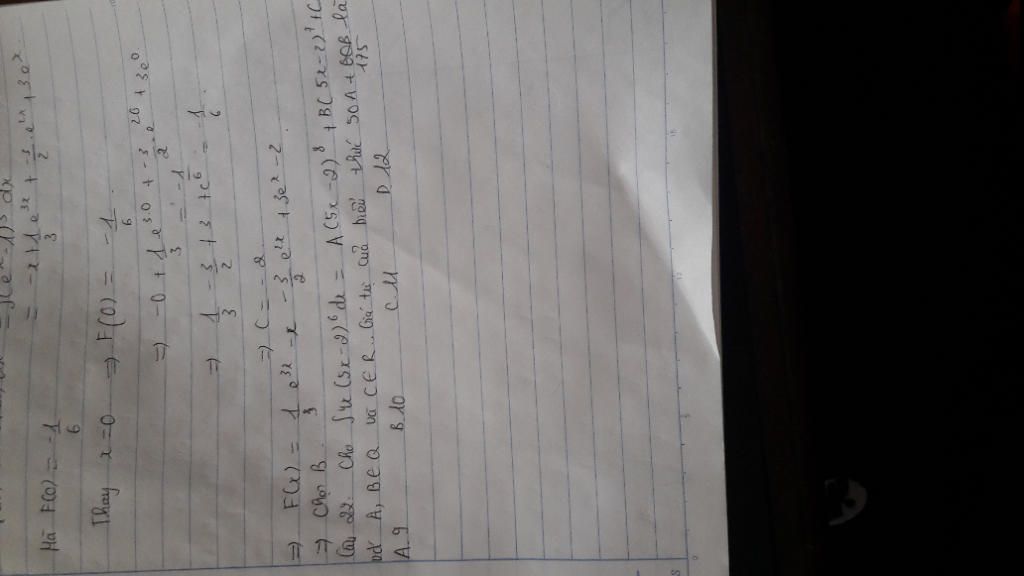 = ∫(e^x - 1)^3 dx
= -x + 1/3 e^{3x} + -3/2 e^{2x} + 3e^x
Mà F(0) = -1/6
Thay x = 0 => F(0) = -1/6
=> -0 + 1/3 e^{3.0} + -3/2 . e^{2.0} + 3e^0
= -1/6
=> 1/3 - 3/2 + 3 + C = -1/6
=> C = -2
=> F(x) = 1/3 e^{3x} - x - 3/2 e^{2x} + 3e^x - 2
=> Chọn B.
Câu 22. Cho ∫x(5x-2)^6 dx = A(5x-2)^8 + B(5x-2)^7 + C
với A, B ∈ Q và C ∈ R. Giá trị của biểu thức 50A + 175B là
A. 9 B. 10 C. 11 D. 12